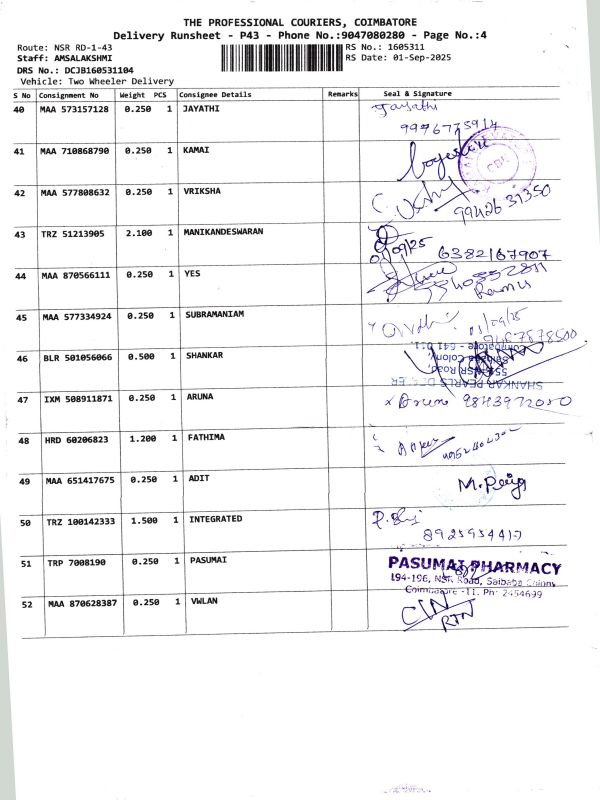 THE PROFESSIONAL COURIERS, COIMBATORE
Delivery Runsheet - P43 - Phone No.:9047080280 - Page No.:4
Route: NSR RD-1-43 RS No.: 1605311
Staff: AMSALAKSHMI RS Date: 01-Sep-2025
DRS No.: DCJB160531104
Vehicle: Two Wheeler Delivery
S No Consignment No Weight PCS Consignee Details Remarks Seal & Signature
40 MAA 573157128 0.250 1 JAYATHI Jayathi
9976775914
41 MAA 710868790 0.250 1 KAMAI
42 MAA 577808632 0.250 1 VRIKSHA
9942631350
43 TRZ 51213905 2.100 1 MANIKANDESWARAN
01/09/25 6382167907
44 MAA 870566111 0.250 1 YES
Ramu
45 MAA 577334924 0.250 1 SUBRAMANIAM
01/09/25
46 BLR 501056066 0.500 1 SHANKAR
SHANKAR PEARLS
NSR Road,
Colony,
Coimbatore - 641 011
47 IXM 508911871 0.250 1 ARUNA x Arun 9843972050
48 HRD 60206823 1.200 1 FATHIMA
49 MAA 651417675 0.250 1 ADIT
50 TRZ 100142333 1.500 1 INTEGRATED
8925954417
51 TRP 7008190 0.250 1 PASUMAI PASUMAI PHARMACY
194-196, NSR Road, Saibaba Colony
Coimbatore -11. Ph: 2454699
52 MAA 870628387 0.250 1 VWLAN
RTN